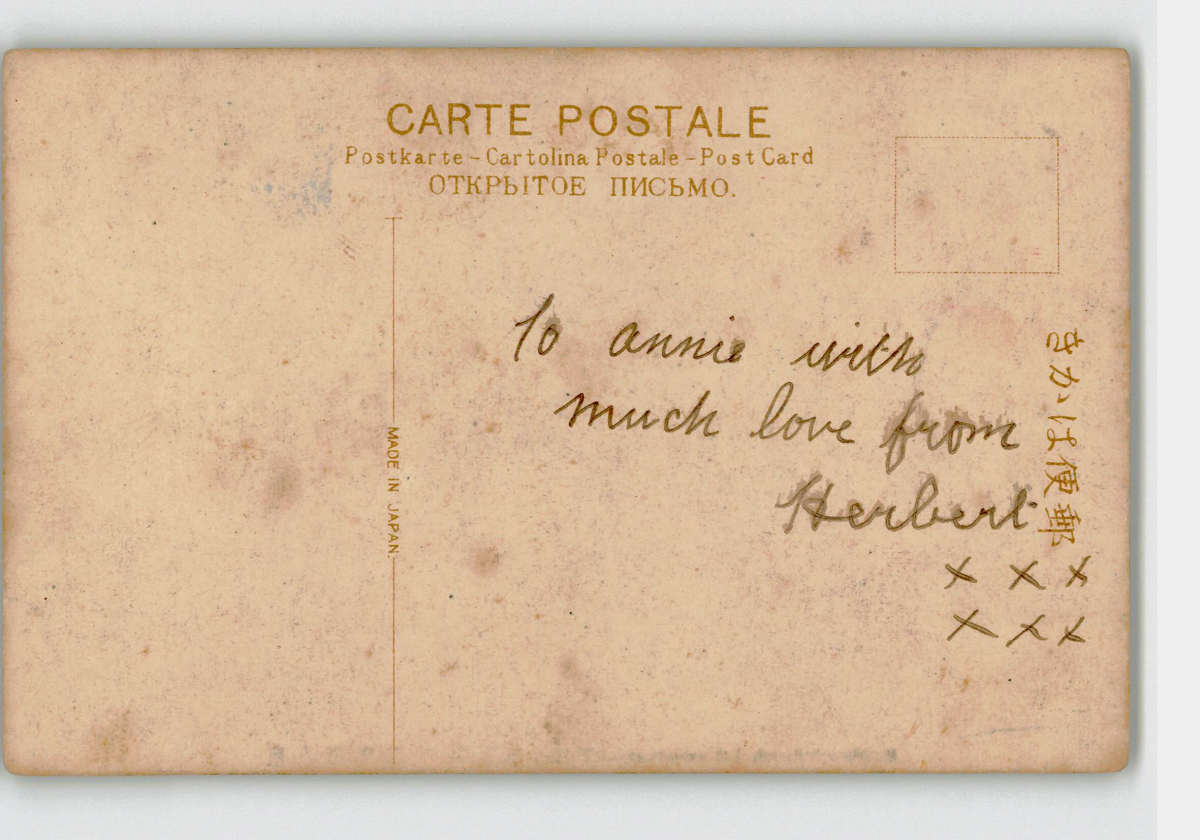 CARTE POSTALE
Postkarte - Cartolina Postale - Post Card
ОТКРЫТОЕ ПИСЬМО.
MADE IN JAPAN.
To annie with
much love from
Herbert
x x x
x x x
きかは便郵